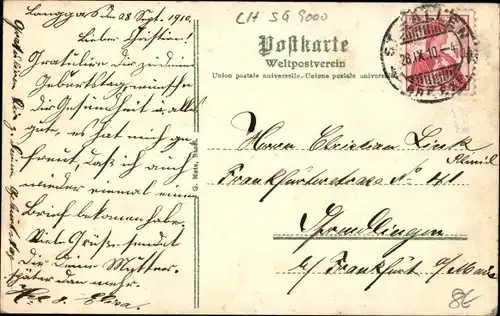 Langgass den 28 Sept. 1910.
Lieber Christian!
Gratuliere dir zu deinem
Geburtstag, wünsche
dir Gesundheit u. alles
gute, es hat mich ge-
freut, dass ich auch
wieder einmal einen
Brief bekommen habe,
Viele Grüsse sendet
Dir deine Mutter.
später dan mehr.
CH SG 9000
Postkarte
Weltpostverein
Union postale universelle. - Unione postale universale
ST. GALLEN
28.IX.10.-4
G. Metz, Basel
Herrn Christian Link
Frankfurterstrasse No 141
Sprendlingen
b/ Frankfurt a/Main
8€